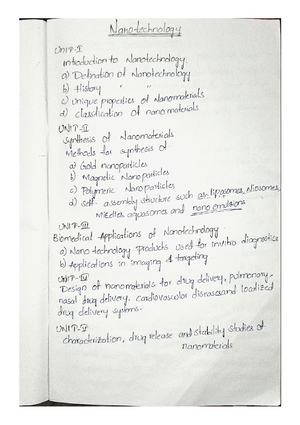 Nanotechnology
UNIT-I
Introduction to Nanotechnology
a) Defination of Nanotechnology
b) History " "
c) Unique properties of Nanomaterials
d) Classification of nanomaterials
UNIT-II
Synthesis of Nanomaterials
Methods for synthesis of
a) Gold nanoparticles
b) Magnetic Nanoparticles
c) Polymeric Nanoparticles
d) Self- assembly structure such as liposomes, Niosomes,
Micelles, aquasomes and nano emulsions
UNIT-III
Biomedical Applications of Nanotechnology
a) Nano technology Products used for invitro diagnostics
b) Applications in imaging & targeting
UNIT-IV
Design of nanomaterials for drug delivery, pulmonary-
nasal drug delivery, cardiovascular diseases and localized
drug delivery systems.
UNIT-V
Characterization, drug release and stability studies of
nanomaterials